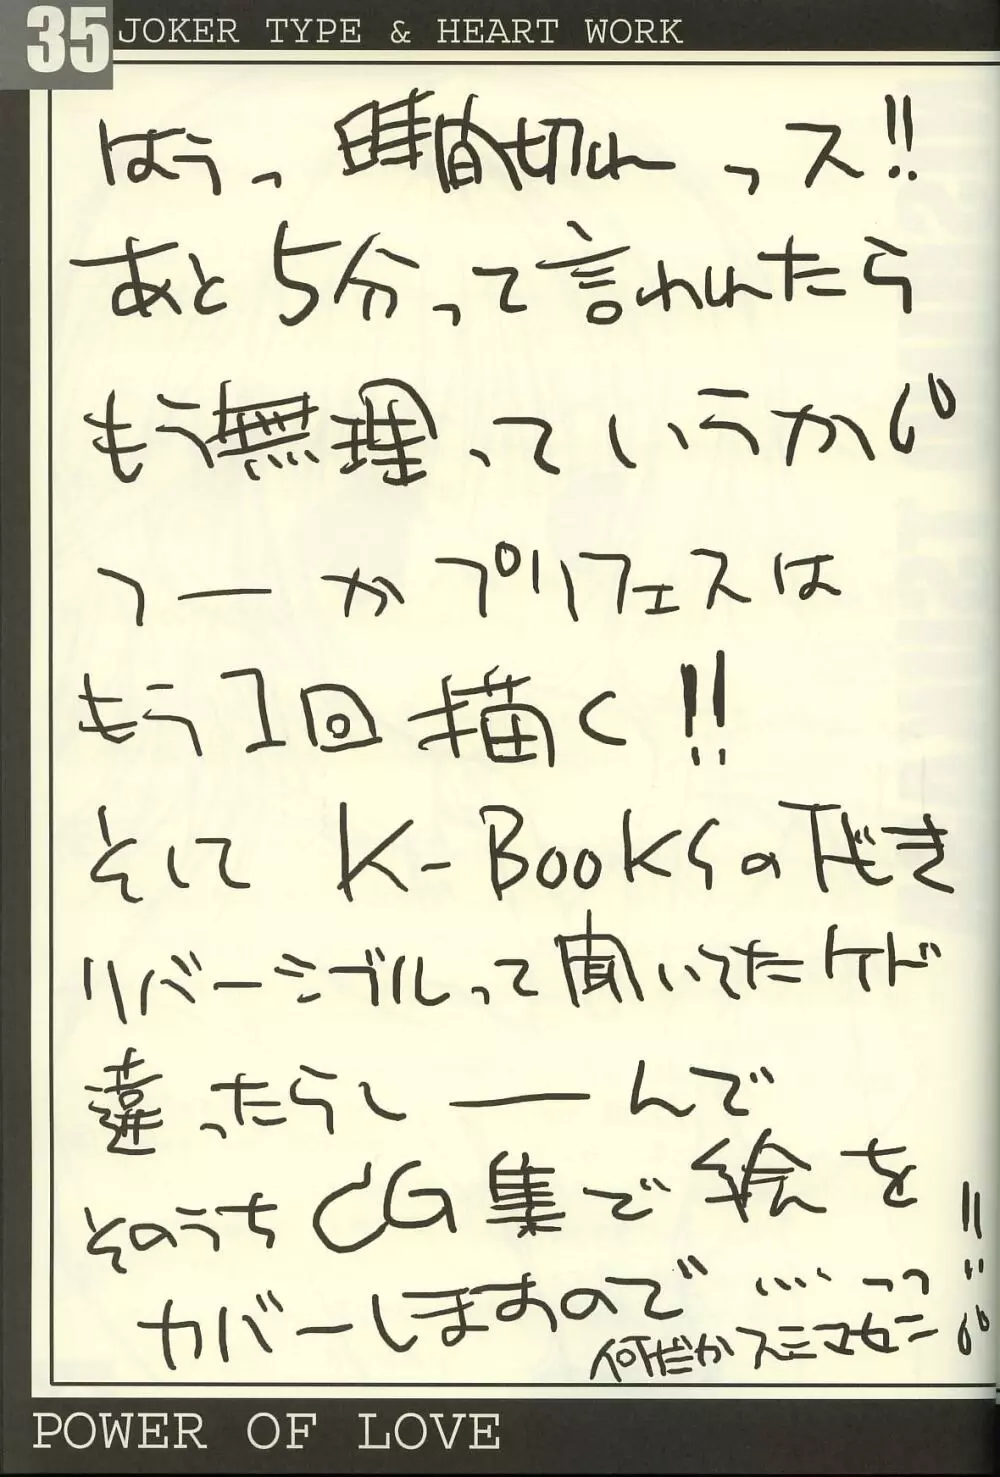 35 JOKER TYPE & HEART WORK
はうっ 時間切れ っス!!
あと 5分って言われたら
もう無理っていうか。
つーかプリフェスは
もう1回描く!!
そして K-BOOKSの下だき
リバーシブルって聞いてたケド
違ったらしーんで
そのうち CG集で絵を
カバーしますので …っつ!!
何だかスミマセニ。
POWER OF LOVE